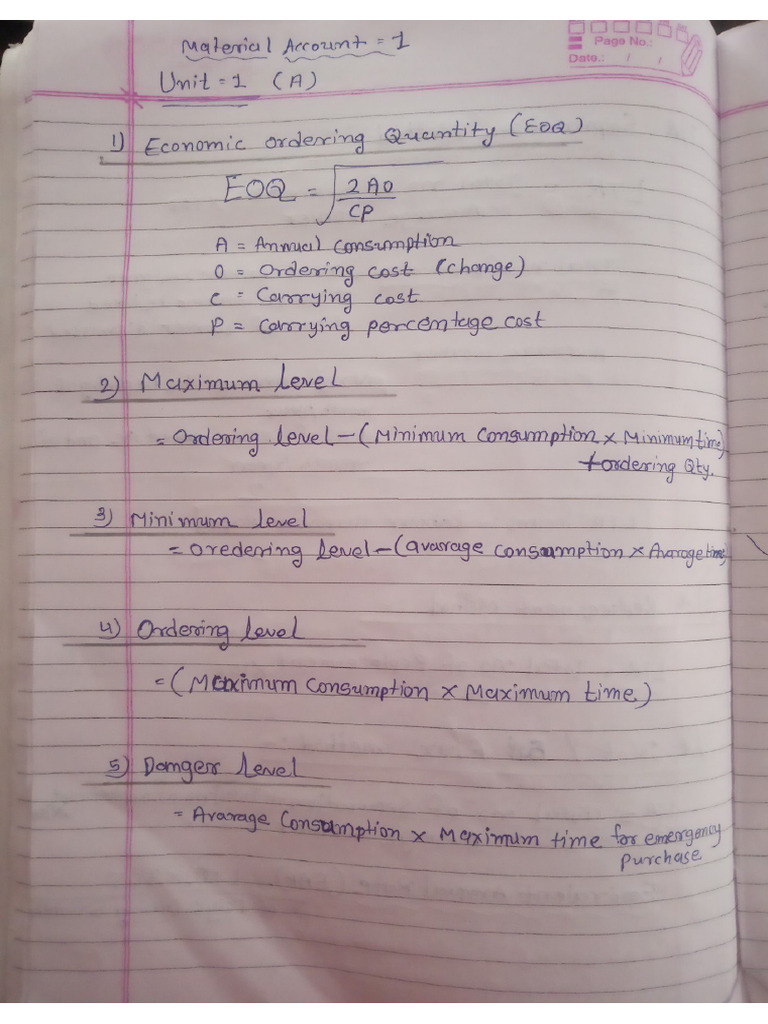 Page No.:
Date.: / /
Material Account = 1
Unit = 1 (A)
1) Economic ordering Quantity (EOQ)
EOQ = √2AO/CP
A = Annual consumption
O = ordering cost (change)
C = Carrying cost
P = Carrying percentage cost
2) Maximum level
= Ordering level - (Minimum Consumption x Minimum time)
+ ordering Qty.
3) Minimum level
= Oredering level - (avarage consumption x Avarage time)
4) Ordering level
= (Maximum consumption x Maximum time)
5) Danger level
= Avarage Consumption x Maximum time for emergency
purchase